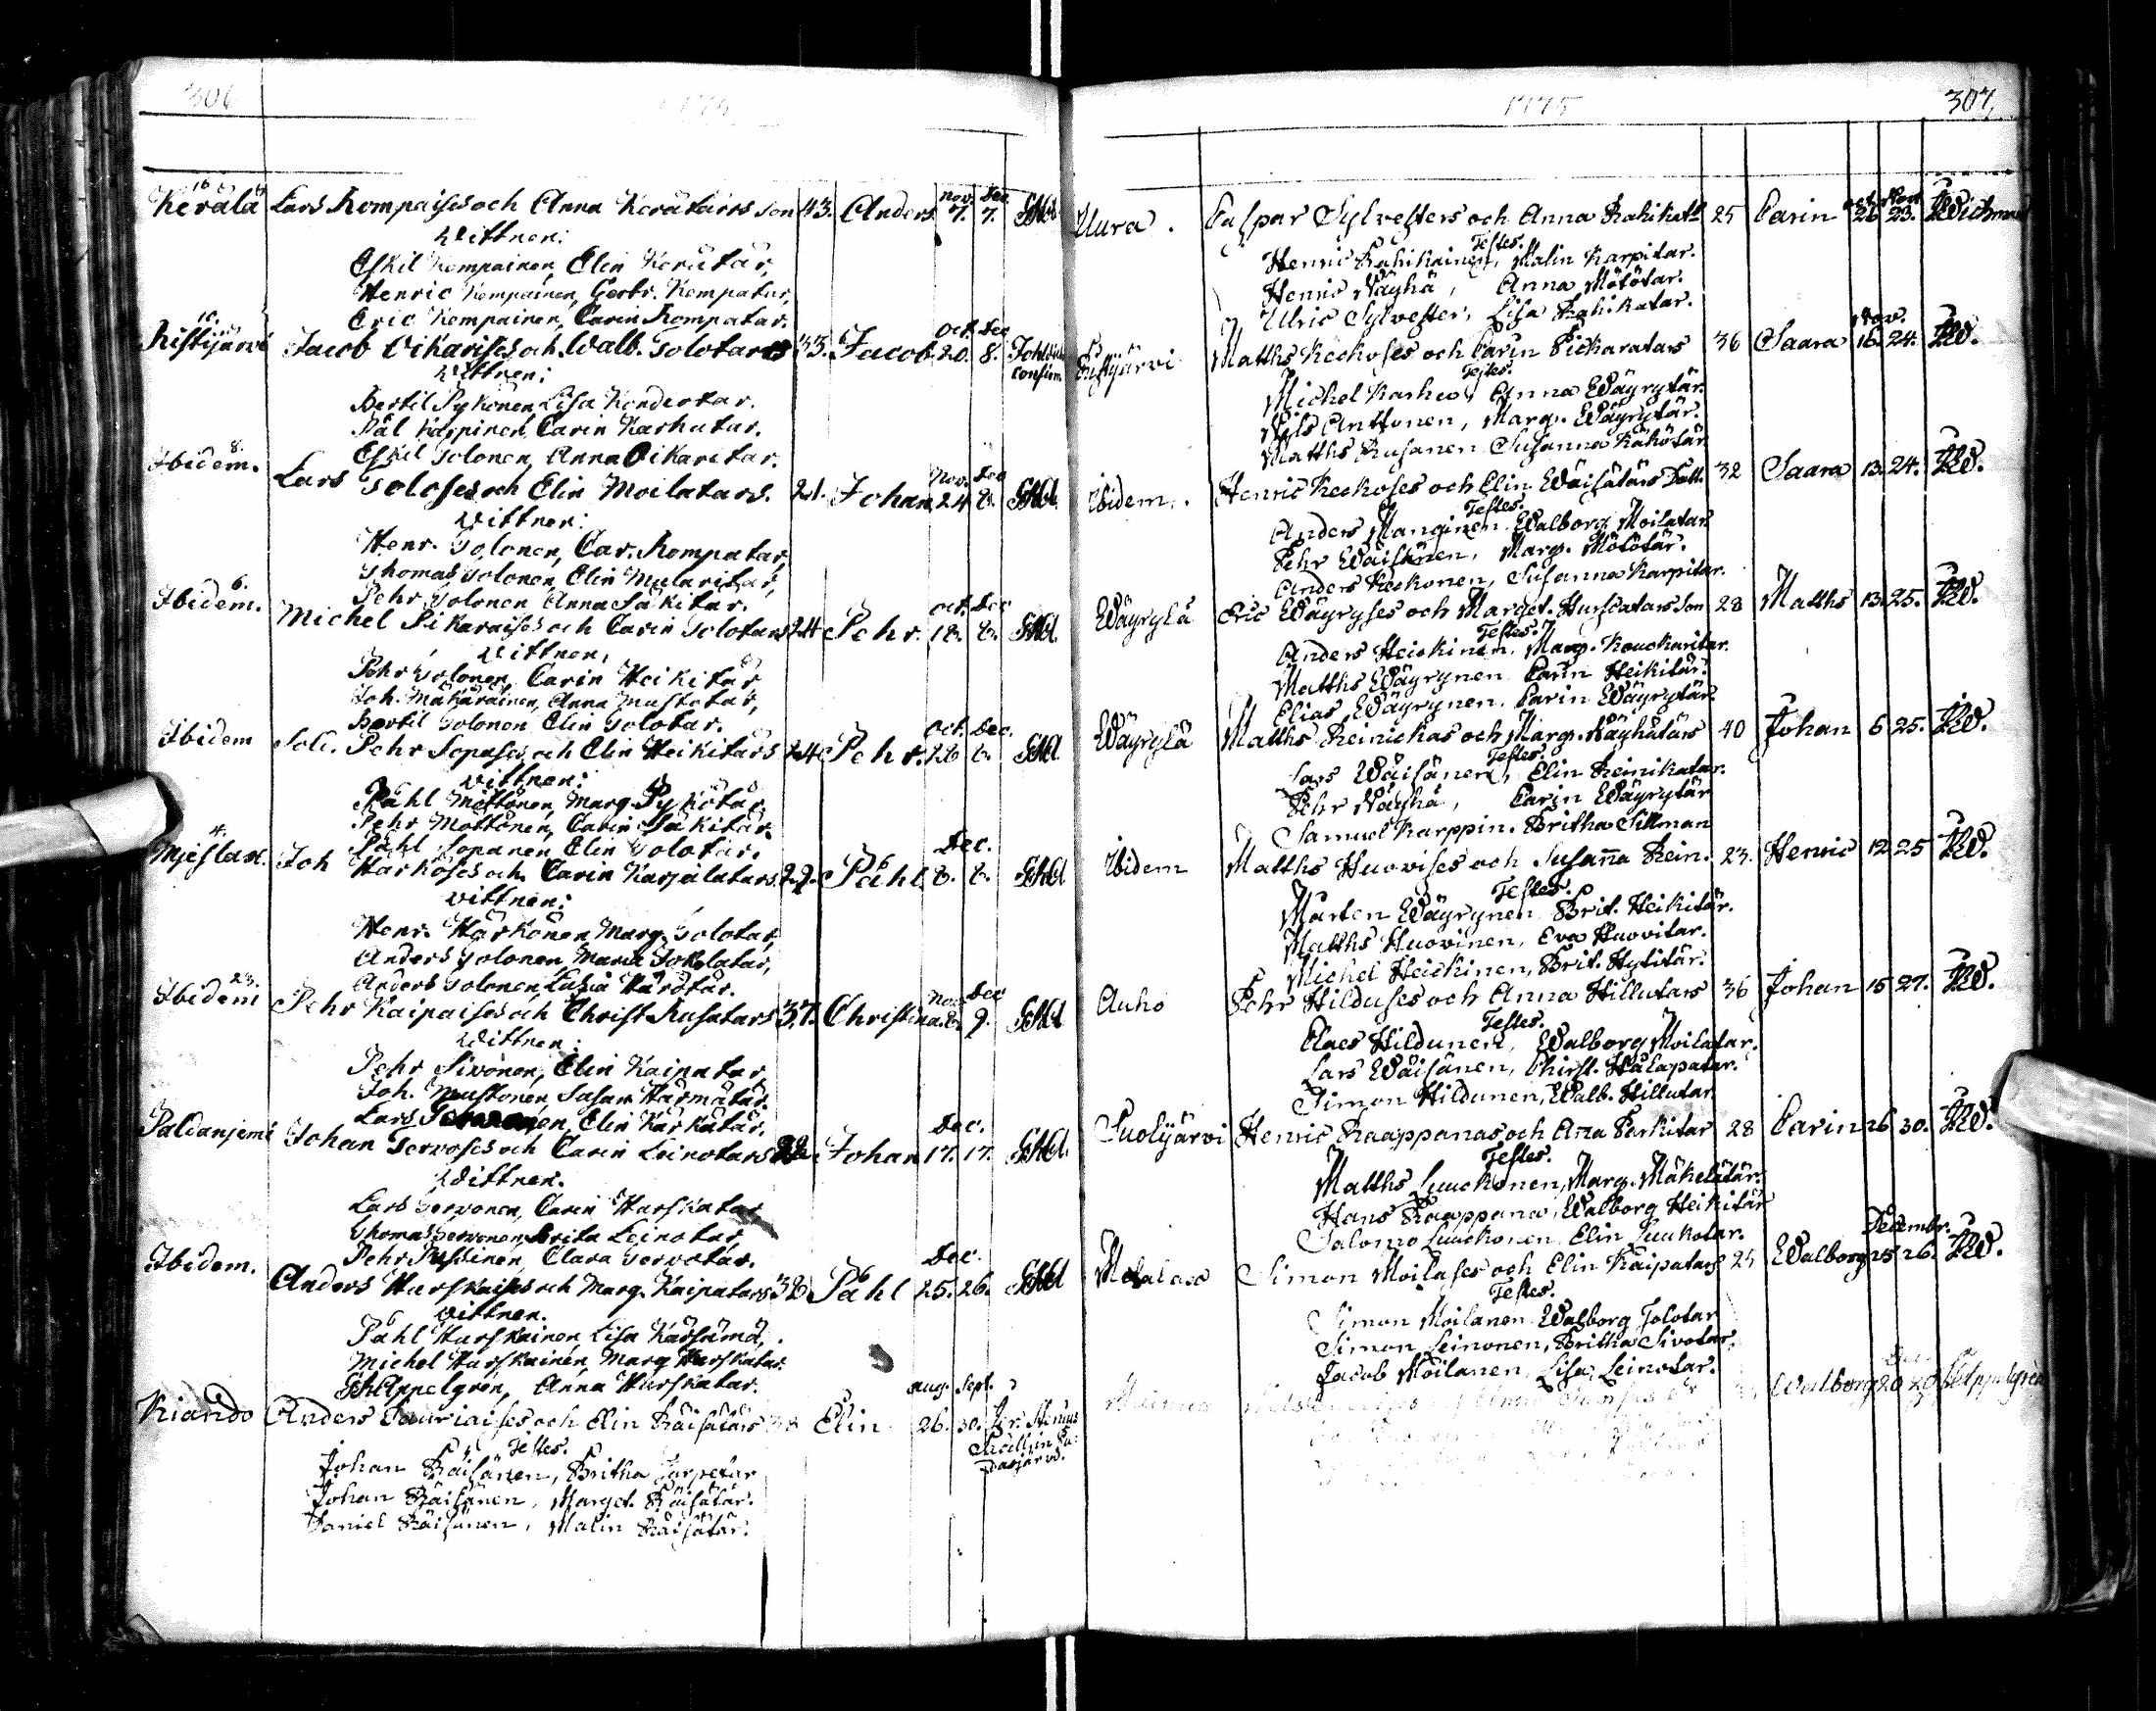 306
1775
Kerälä 16 Lars Kompaises och Anna Kerätärs son 43. Anders nov. 7. Dec. 7.
Wittnen:
Eskil Kempainen, Elin Kerätär,
Henric Kempainen, Gertr. Kempatar,
Eric Kempainen, Carin Kompatar.
Ristijärvi 10. Jacob Oikarises och Walb. Tolotars 33. Jacob oct. 20. Dec 8.
Wittnen:
Bertil Pykönen, Lisa Kondeotar.
Pål Karpinen, Carin Karhutar.
Eskil Tolonen, Anna Oikaritar.
Ibidem. 8. Lars Toloses och Elin Moilatars. 21. Johan Nov. 24 Dec 8.
Wittnen:
Henr. Tolonen, Car. Kompatar,
Thomas Tolonen, Elin Mularitar,
Pehr Tolonen Anna Säkitär.
Ibidem. 6. Michel Pikaraises och Carin Tolotars 24 Pehr. oct. 18. Dec 8.
Wittnen,
Pehr Tolonen, Carin Heikitär
Joh. Mäkäräinen, Anna Mustotar,
Bertil Tolonen Elin Tolotar.
Ibidem Sold. Pehr Sopases och Elin Heikitärs 24 Pehr. Oct. 28 Dec. 8.
Wittnen:
Påhl Möttönen, Marg. Pykötär.
Pehr Möttönen, Carin Säkitär.
Påhl Sopanen Elin Tolotar.
Mjeslax. 4. Joh Härköses och Carin Karjalatars. 22. Påhl Dec. 8. 8.
Wittnen:
Henr. Härkönen Marg. Tolotar,
Anders Tolonen Maria Tokolatar,
Anders Tolonen, Lisa Härötär.
Ibidem 23. Pehr Kaipaises och Christ. Rusatars 37. Christina Nov. 8. Dec 9.
Wittnen:
Pehr Sivonen, Elin Kaipatar
Joh. Mustonen Susan Härmätär
Lars Elin Kärkätär.
Paldanjemi Johan Tervoses och Carin Leinotars 22 Johan Dec. 17. 17.
Wittnen.
Lars Tervonen, Carin Hurskatar
Thomas Tervonen, Brita Leinotar
Pehr Mussinen, Clara Tervotar.
Ibidem. Anders Hurskaises och Marg. Kaipatars 38 Påhl Dec. 25. 26.
Wittnen.
Påhl Hurskainen, Lisa Kärsämä,
Michel Hurskainen, Marg Hurskatar.
Appelgren, Anna Hurskatar.
Kiando Anders Lauriaises och Elin Räisätärs 38 Elin aug. 26. Sept. 30.
Testes.
Johan Räisänen, Britha Turpetar
Johan Räisänen, Marget. Räisätär.
Daniel Räisänen, Malin Räisätär.
1775
307
Uura. Caspar Sylvesters och Anna Rahikatr 25 Carin oct. 26 Nov. 23. Wichman
Testes.
Henric Rahikainen, Malin Karpitar.
Henric Näyhä, Anna Mötötär.
Ulric Sylvester, Lisa Rahikatar.
Ristijärvi Matths Keckoses och Carin Pickaratars 36 Saara Nov. 16. 24. Id.
Testes.
Michel Karhu, Anna Wäyrytär.
Nils Anttonen, Marg. Wäyrytär.
Matths Rusanen Susanna Kähötär
Ibidem. Henric Keckoses och Elin Wäisätärs Dott. 32 Saara 13. 24. Id.
Testes.
Anders Manninen. Walborg Moilatar
Pehr Wäisänen, Marg. Mötötär.
Anders Keckonen, Susanna Karpitar.
Wäyrylä Eric Wäyryses och Marget. Hurscatars son 28 Matths 13. 25. Id.
Testes.
Anders Heickinen, Marg. Kouckaritar.
Matths Wäyrynen Carin Heikitär.
Elias Wäyrynen. Carin Wäyrytär.
Wäyrylä Matths Reinickas och Marg. Näyhätärs 40 Johan 6 25. Id.
Testes.
Lars Wäisänen, Elin Reinikatar.
Pehr Näyhä, Carin Wäyrytär
Samuel Karppin. Britha Sillman
Ibidem Matths Huovises och Susanna Rein. 23. Henric 12 25 Id.
Testes.
Mårten Wäyrynen Brit. Heikitär.
Matths Huovinen, Eva Huovitar.
Michel Heickinen, Brit. Hytitär.
Auho Pehr Hilduses och Anna Hillutars 36 Johan 15 27. Id.
Testes.
Claes Hildunen, Walborg Moilatar.
Lars Wäisänen, Christ. Halapatar.
Simon Hildunen, Walb. Hillutar
Puolijärvi Henric Raappanas och Ana Parkitar 28 Carin 26 30. Id.
Testes.
Matths Luuckonen, Marg. Mäkelätär.
Hans Raappana, Walborg Heikitär
Salomo Luuckonen Elin Luukotar.
Melalax Simon Moilases och Elin Kaipatars 25 Walborg Decembr. 25 26. Id.
Testes.
Simon Moilanen Walborg Tolotar
Simon Leinonen, Britha Sivotar.
Jacob Moilanen Lisa Leinotar.
Walborg 20 26